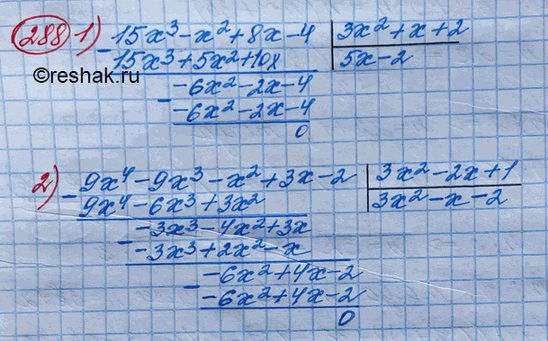 288 1) 15x³ - x² + 8x - 4 | 3x² + x + 2
- 15x³ + 5x² + 10x | 5x - 2
©reshak.ru
- -6x² - 2x - 4
-6x² - 2x - 4
0
2) - 9x⁴ - 9x³ - x² + 3x - 2 | 3x² - 2x + 1
9x⁴ - 6x³ + 3x² | 3x² - x - 2
- -3x³ - 4x² + 3x
-3x³ + 2x² - x
- -6x² + 4x - 2
-6x² + 4x - 2
0